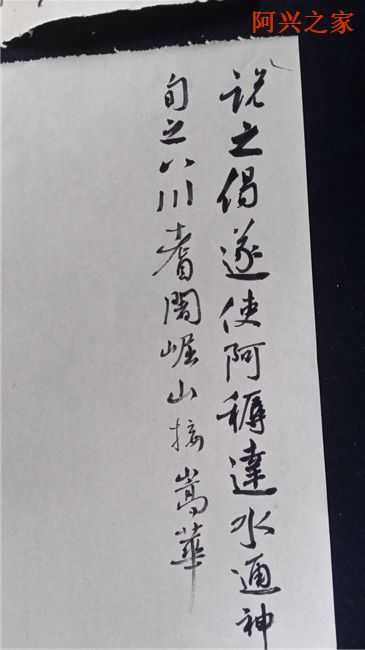 阿兴之家
說之偈遂使阿耨達水通神
甸之八川耆闍崛山接嵩華